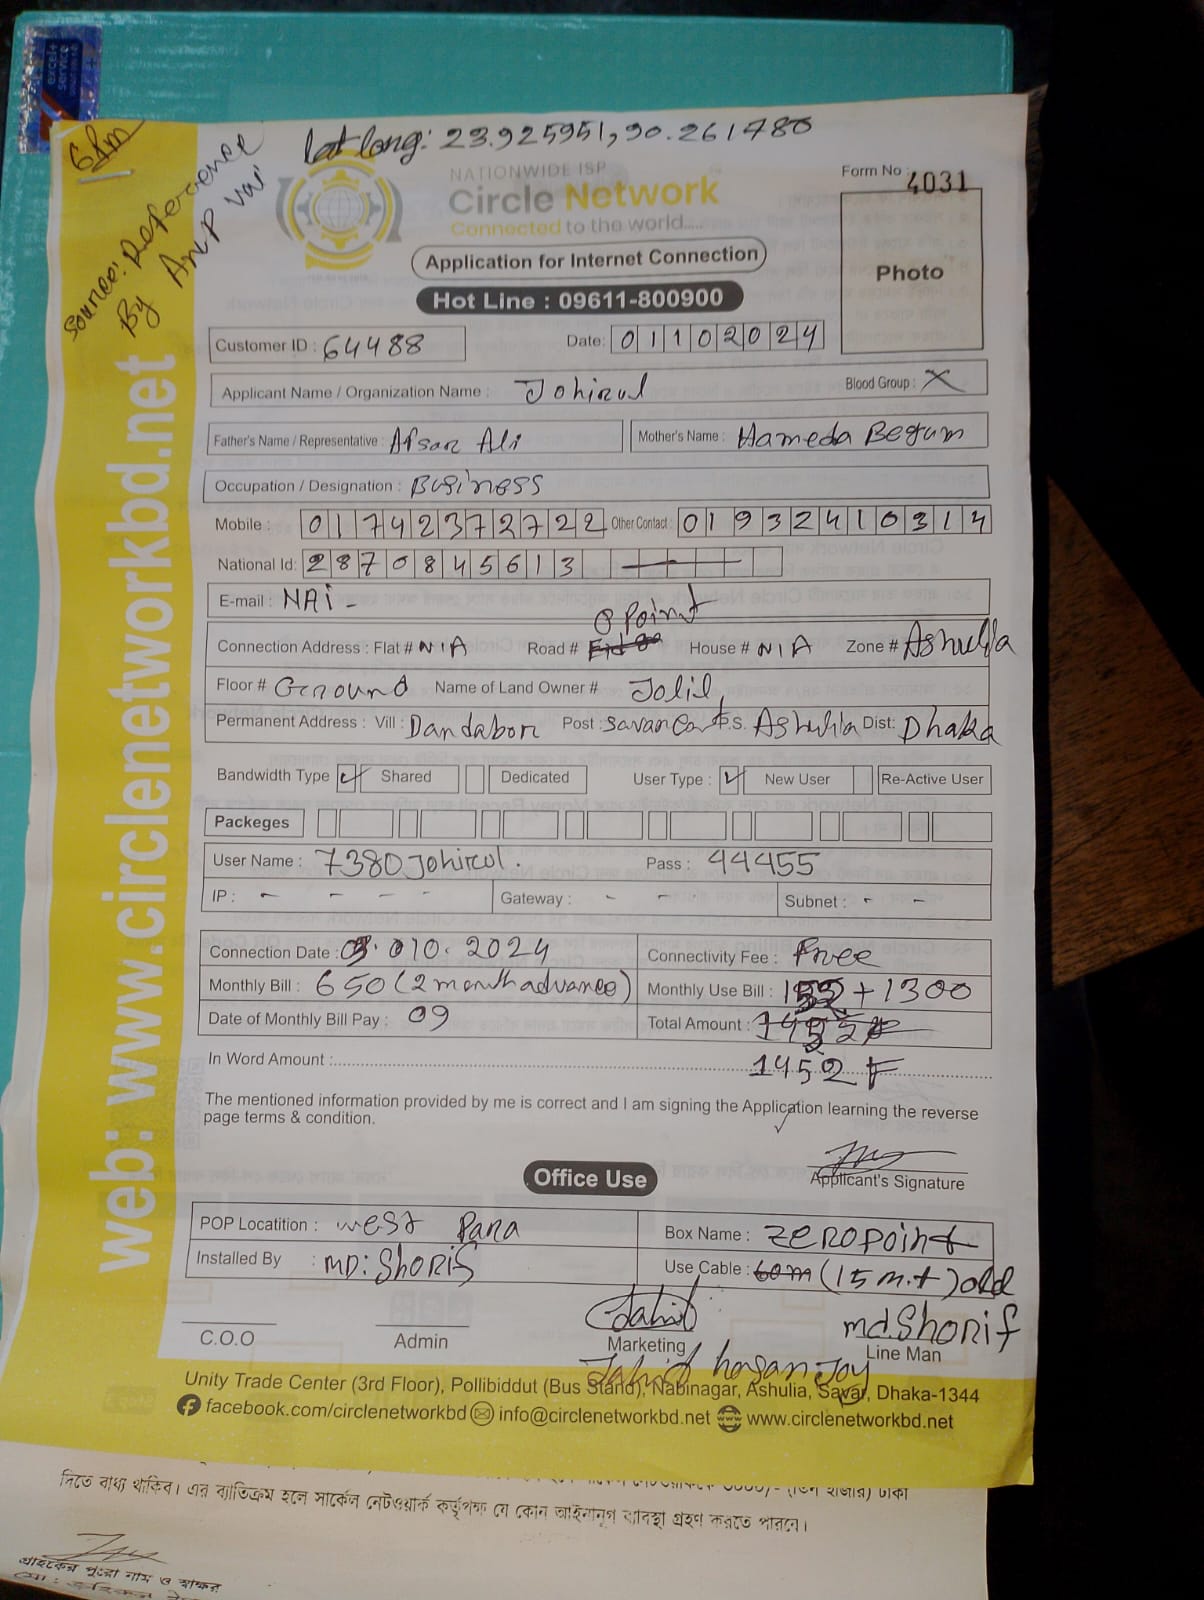 excel+
service
6 Pm
Source: Reference
By ANP Vai
Lat long: 23.925951, 90.261780
NATIONWIDE ISP
Circle Network
Connected to the world.....
Form No : 4031
Photo
Application for Internet Connection
Hot Line : 09611-800900
Customer ID : 64488 Date: 01102024
Applicant Name / Organization Name : Johirul Blood Group : X
Father's Name / Representative : Afsar Ali Mother's Name : Hameda Begum
Occupation / Designation : Business
Mobile : 01742372722 Other Contact : 01932410314
National Id: 2870845613
E-mail : NAi -
0 Point
Connection Address : Flat # N/A Road # House # N/A Zone # Ashulia
Floor # Ground Name of Land Owner # Jolil
Permanent Address : Vill : Dandabori Post : Savar Cant P.S. Ashulia Dist: Dhaka
Bandwidth Type ✓ Shared Dedicated User Type : ✓ New User Re-Active User
Packeges
User Name : 7380Johirul. Pass : 44455
IP : - - - - Gateway : - - Subnet : - -
Connection Date : 03.010.2024 Connectivity Fee : Free
Monthly Bill : 650 (2 month advance) Monthly Use Bill : 152 + 1300
Date of Monthly Bill Pay : 09 Total Amount :
In Word Amount : 1452 F
The mentioned information provided by me is correct and I am signing the Application learning the reverse
page terms & condition.
Applicant's Signature
Office Use
POP Locatition : West Para Box Name : Zeropoint
Installed By : MD: Shoris Use Cable : 60m (15 m.t) old
C.O.O Admin Jahid Marketing md.Shorif Line Man
Jahid hasan Joy
Unity Trade Center (3rd Floor), Pollibiddut (Bus Stand), Nabinagar, Ashulia, Savar, Dhaka-1344
facebook.com/circlenetworkbd info@circlenetworkbd.net www.circlenetworkbd.net
web: www.circlenetworkbd.net
দিতে বাধ্য থাকিব। এর ব্যতিক্রম হলে সার্কেল নেটওয়ার্ক কর্তৃপক্ষ যে কোন আইনানুগ ব্যবস্থা গ্রহণ করতে পারবে।
গ্রাহকের পুরো নাম ও স্বাক্ষর